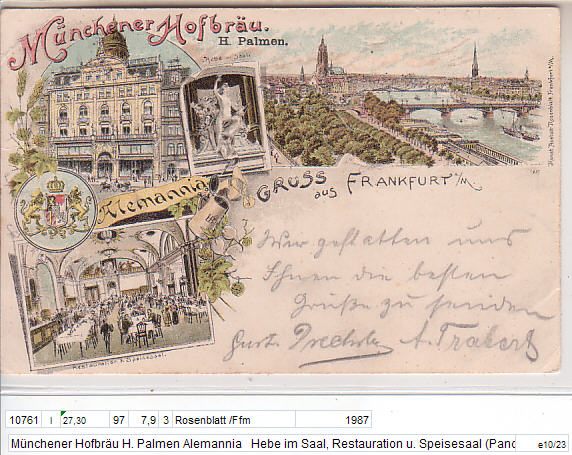 Münchener Hofbräu.
H. Palmen.
Hebe im Saal
Alemannia
GRUSS aus FRANKFURT a/M.
Kunst Anstalt Rosenblatt Frankfurt a/M.
Wir gestatten uns
Ihnen die besten
Grüße zu senden
Gust. Drechsler A. Trabert
Restauration u. Speisesaal.
10761 I 27,30 97 7,9 3 Rosenblatt /Ffm 1987
Münchener Hofbräu H. Palmen Alemannia Hebe im Saal, Restauration u. Speisesaal (Pano e10/23